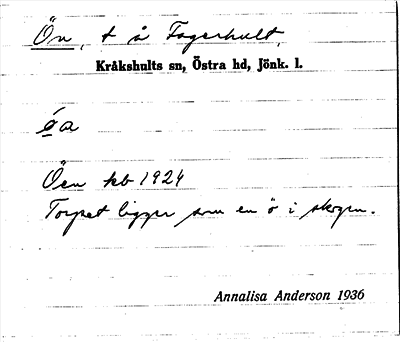 Ön, t å Fagerhult,
Kråkshults sn, Östra hd, Jönk. l.
öa
Öen kb 1924
Torpet ligger som en ö i skogen.
Annalisa Anderson 1936